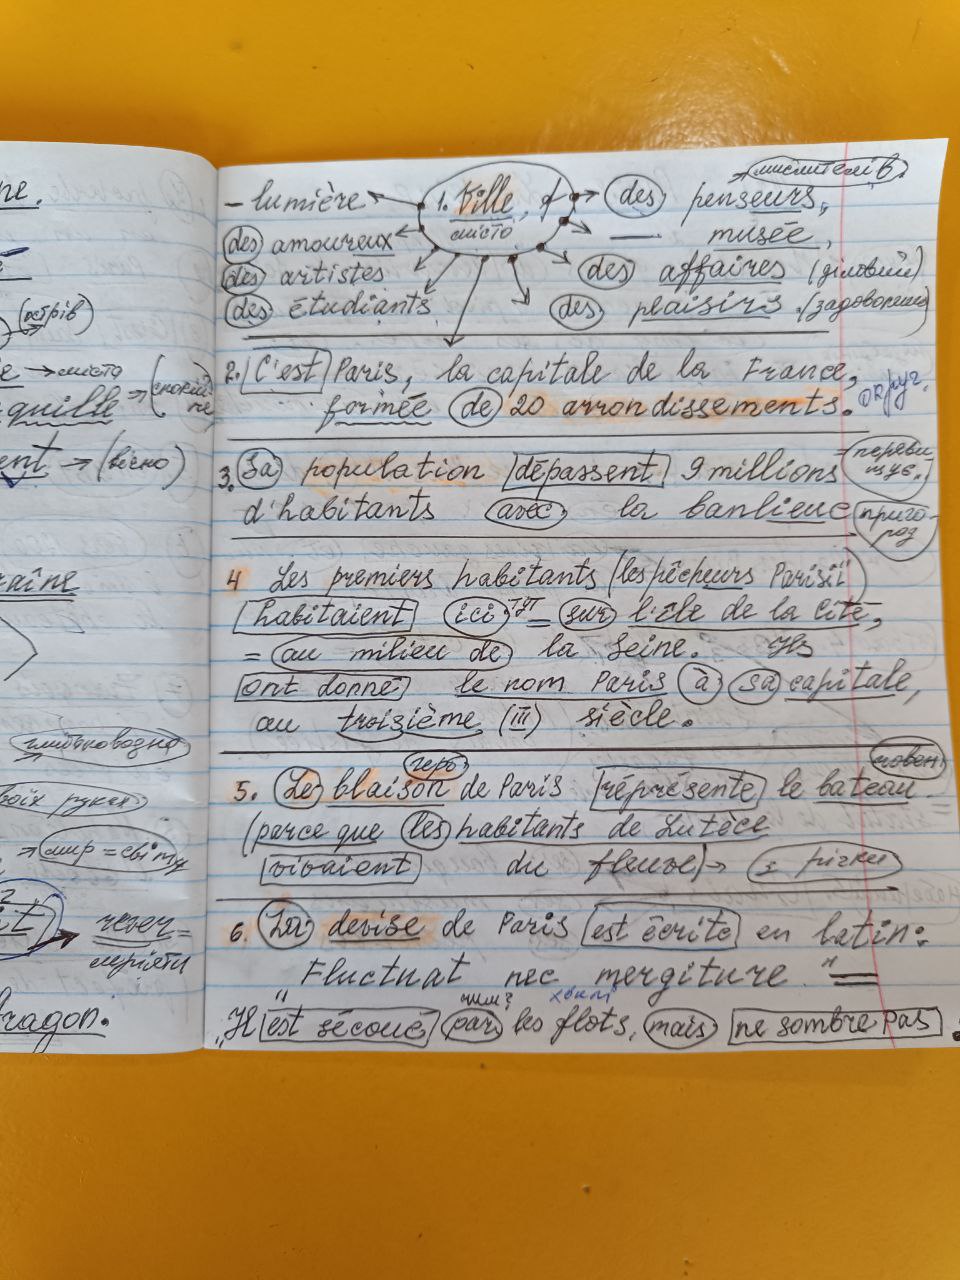 ne.
(острів)
e → місто
quille → (спокій-
ent → (вічно)
raîne
глибоководна
воїх руках
→ мир = світ
rever =
мріяти
Aragon.
мислителів
- lumière 1. Ville, f des penseurs,
місто
des amoureux — musée,
des artistes des affaires (діловий)
des étudiants des plaisirs. (задоволень)
2. C'est Paris, la capitale de la France,
formée de 20 arrondissements. округ.
3. La population dépassent 9 millions = переви-
щує.
d'habitants avec la banlieue приго-
род
4 Les premiers habitants (les pêcheurs Parisii")
habitaient ici тут = sur l'île de la Cité,
= au milieu de la Seine. Ils
ont donné le nom Paris à sa capitale,
au troisième (III) siècle.
герб човен
5. Le blaison de Paris représente le bateau
(parce que les habitants de Lutèce
vivaient du fleuve) → з річки
6. La devise de Paris est écrite en latin:
" Fluctuat nec mergiture " =
чим? хвилі
„Il est sécoué par les flots, mais ne sombre pas.